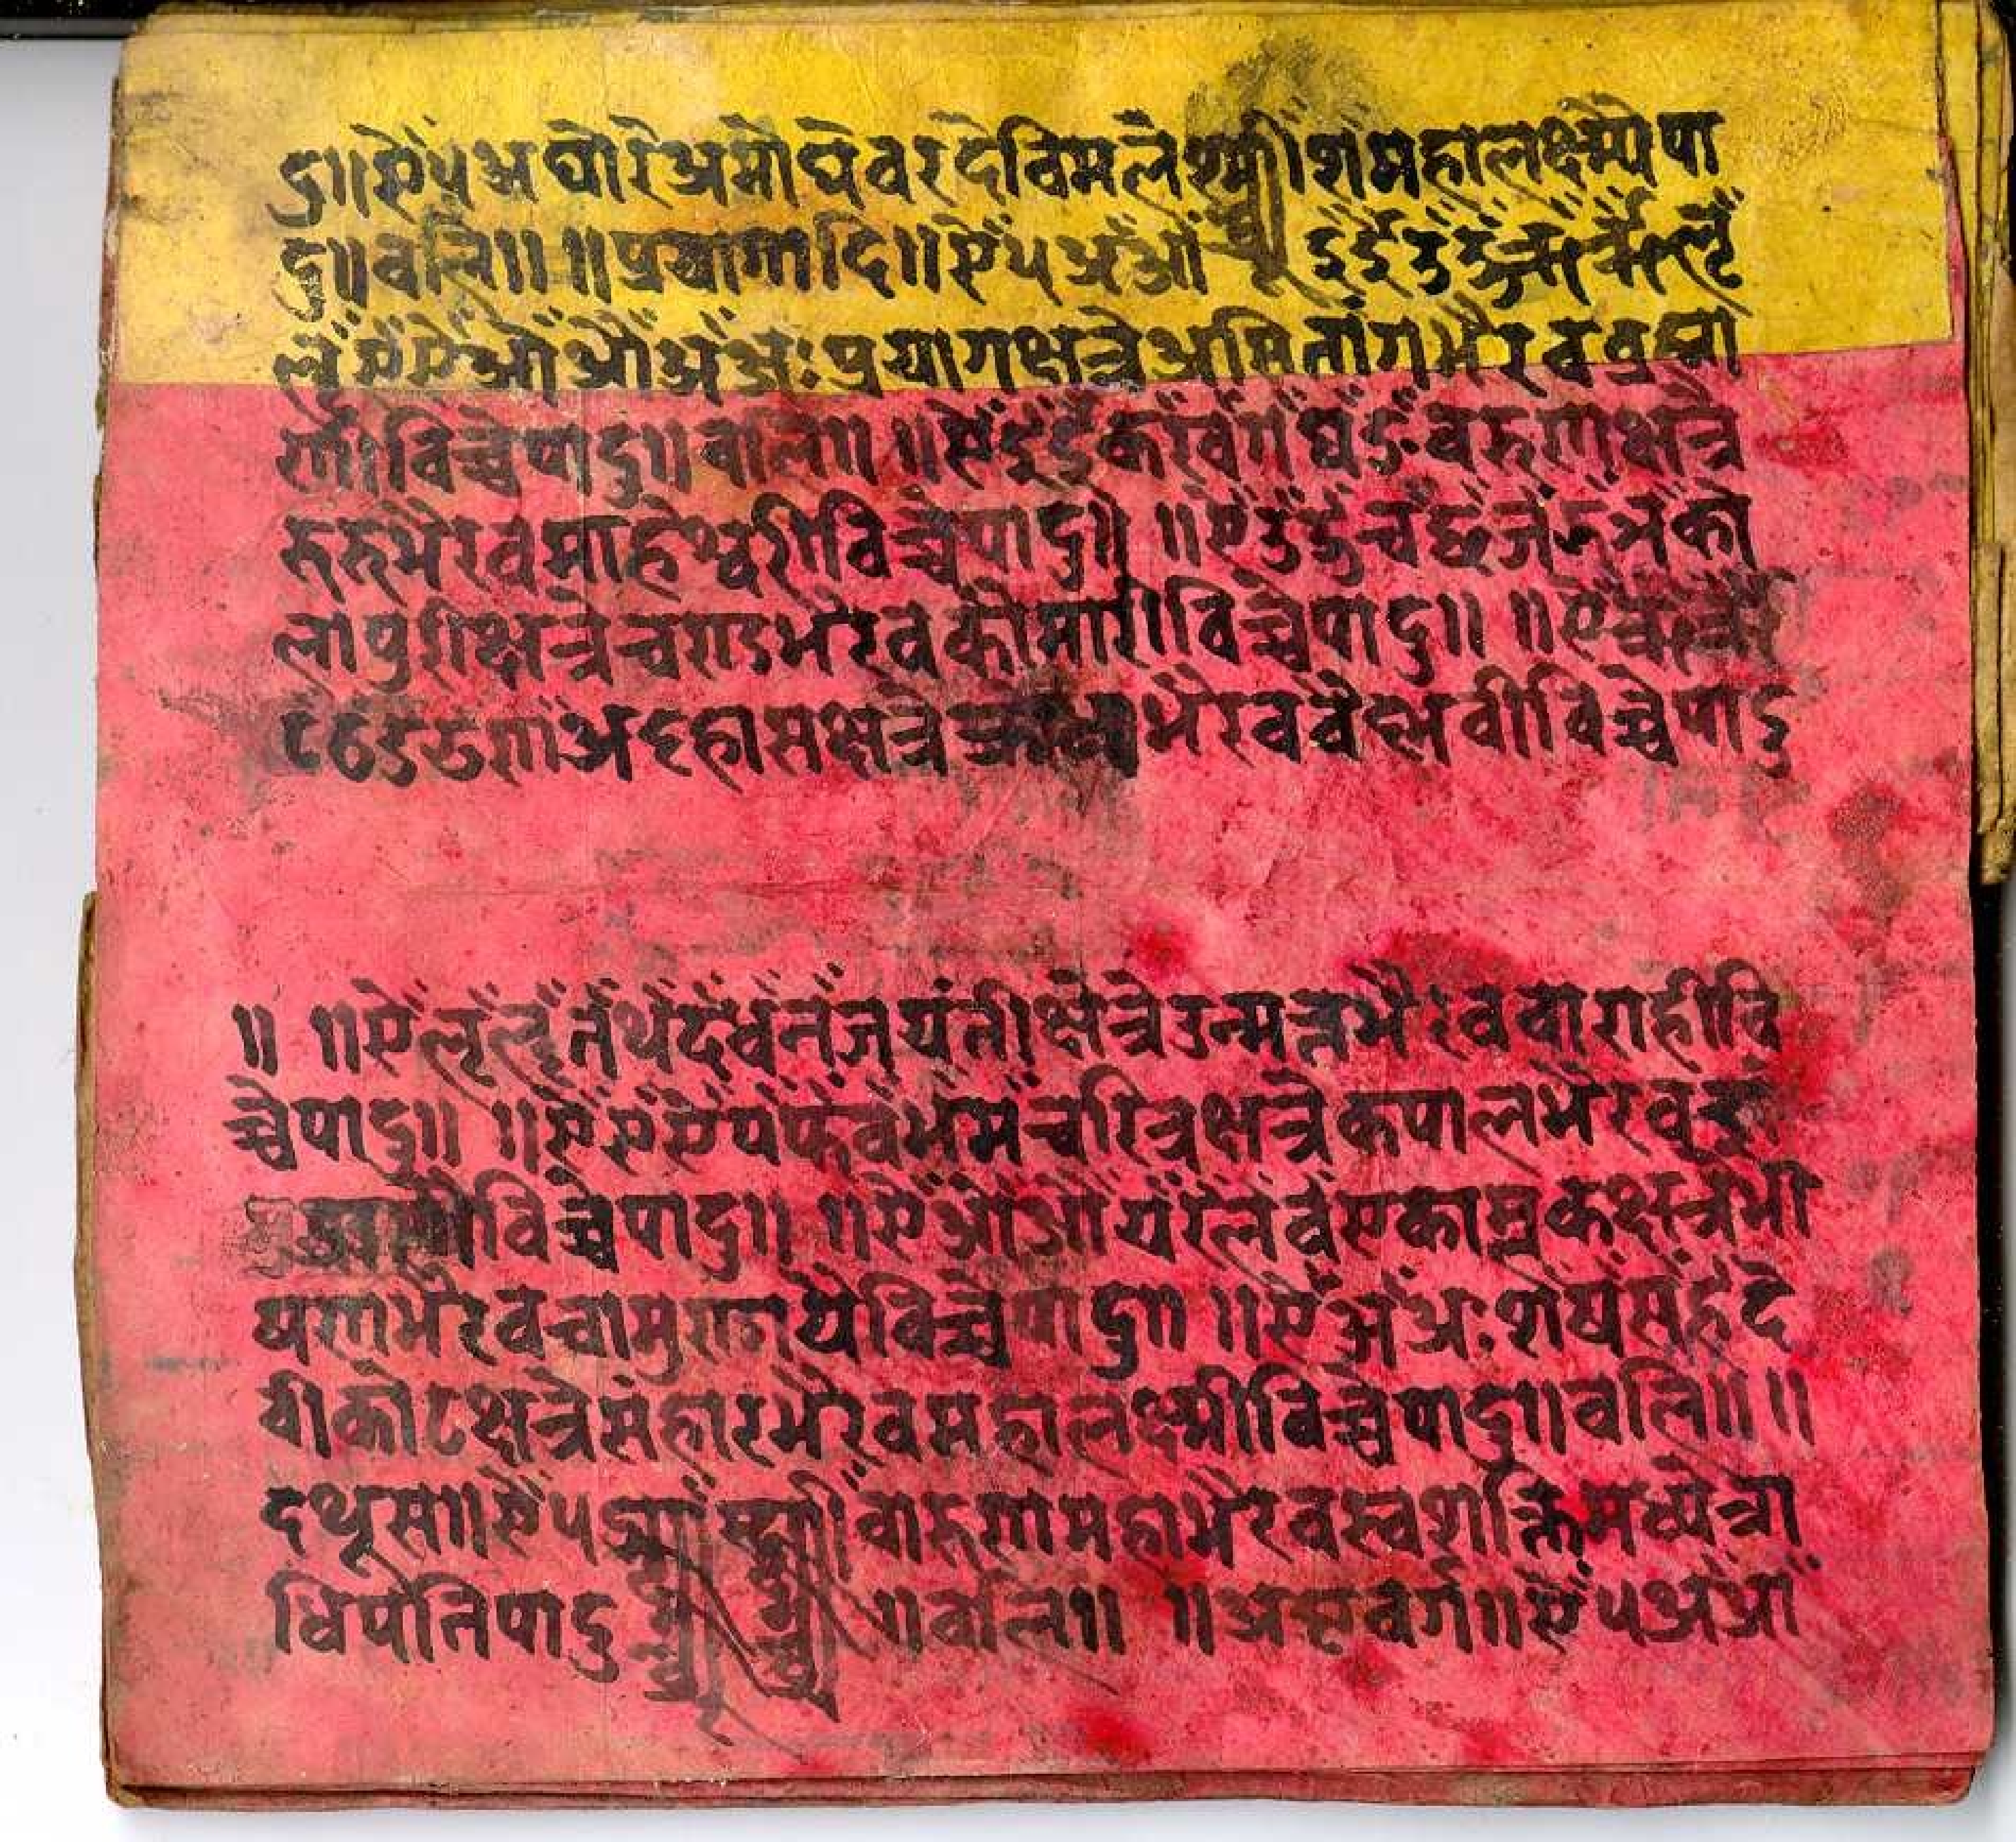 दु॥ ऐँ ५ अघोरे अमोघे वरदे विमले श्रीशमहालक्ष्म्यै पा
दु॥ वलि॥ ॥ प्रयागादि॥ ऐँ ५ अँ आँ इँ ईँ उँ ऊँ ऋँ ॠँ ऌँ
ॡँ एँ ऐँ ओँ औँ अँ अः प्रयागक्षत्रे असितांगभैरव व्रह्मा
णी विच्चे पादु॥ वलि॥ ॥ ऐँ इँ ईँ कँ खँ गँ घँ ङँ वरुणाक्षत्रे
रुरुभैरव माहेश्वरी विच्चे पादु॥ ॥ ऐँ उँ ऊँ चँ छँ जँ झँ ञँ को
लापुरीक्षत्रे चण्डभैरव कौमारी विच्चे पादु॥ ॥ ऐँ ऋँ ॠँ
टँ ठँ डँ ढँ णँ अट्टहासक्षत्रे भैरव वैष्णवी विच्चे पादु
॥ ॥ ऐँ ऌँ ॡँ तँ थँ दँ धँ नँ जयंतीक्षेत्रे उन्मत्तभैरव वाराही वि
च्चे पादु॥ ॥ ऐँ एँ ऐँ पँ फँ वँ भँ मँ चरित्रक्षत्रे कपालभैरव इन्द्रा
विच्चे पादु॥ ॥ ऐँ ओँ औँ यँ रँ लँ वँ एकाम्रकक्षत्रे भी
षणभैरव चामुण्डायै विच्चे पादु॥ ॥ ऐँ अँ अः शँ षँ सँ हँ दे
वीकोटक्षत्रे संहारभैरव महालक्ष्मी विच्चे पादु॥ वलि॥ ॥
दथूस॥ ऐँ ५ वारुणा महाभैरव स्वशक्ति मध्येत्रा
धिपति पादु ॥ वलि॥ ॥ अष्टवर्ग॥ ऐँ ५ अँ आँ